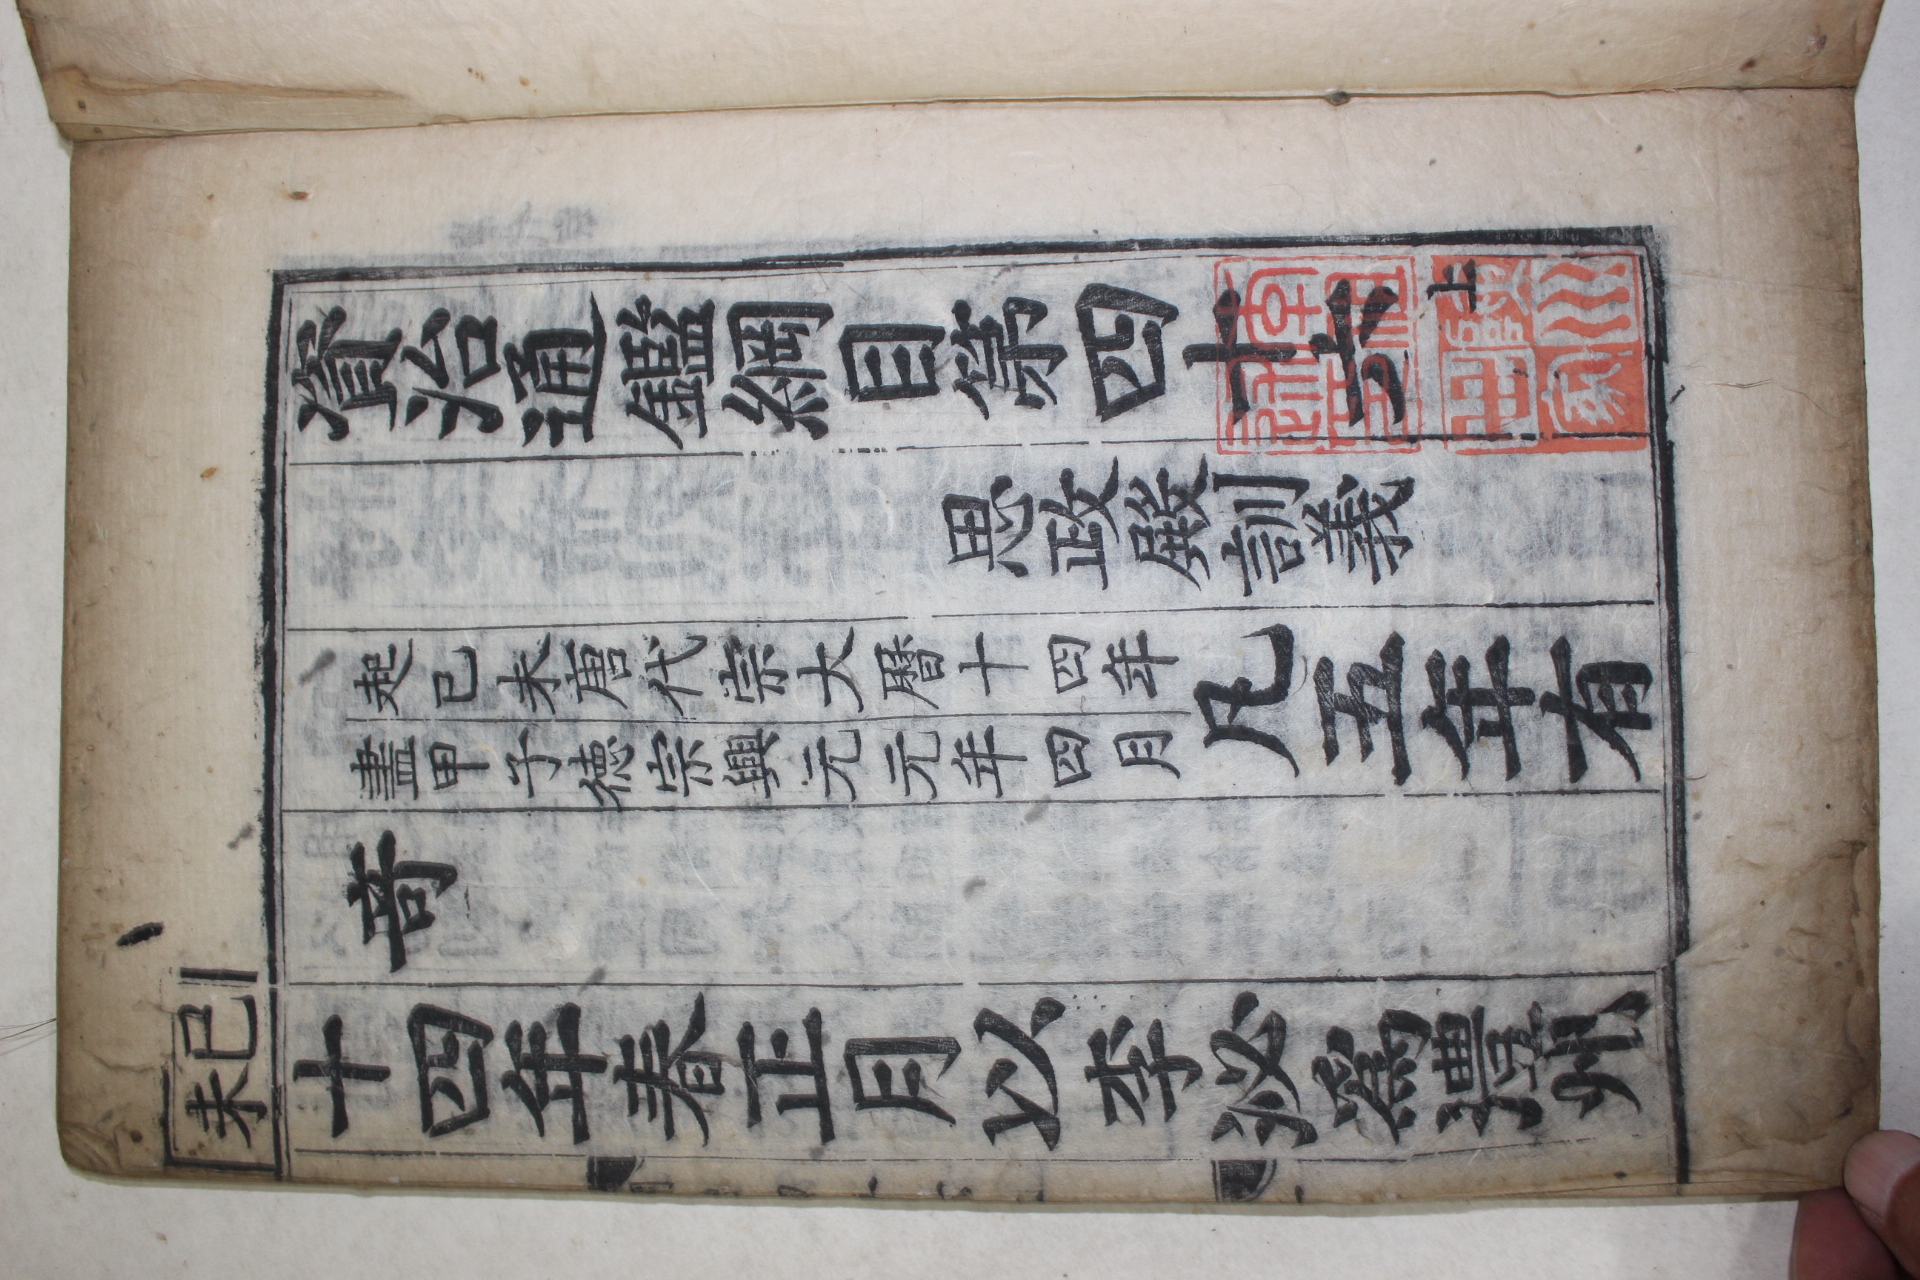 資治通鑑綱目第四十六上
思政殿訓義
起已未唐代宗大曆十四年
盡甲子德宗興元元年四月
凡五年有
奇
已未
十四年春正月以李泌爲澧州